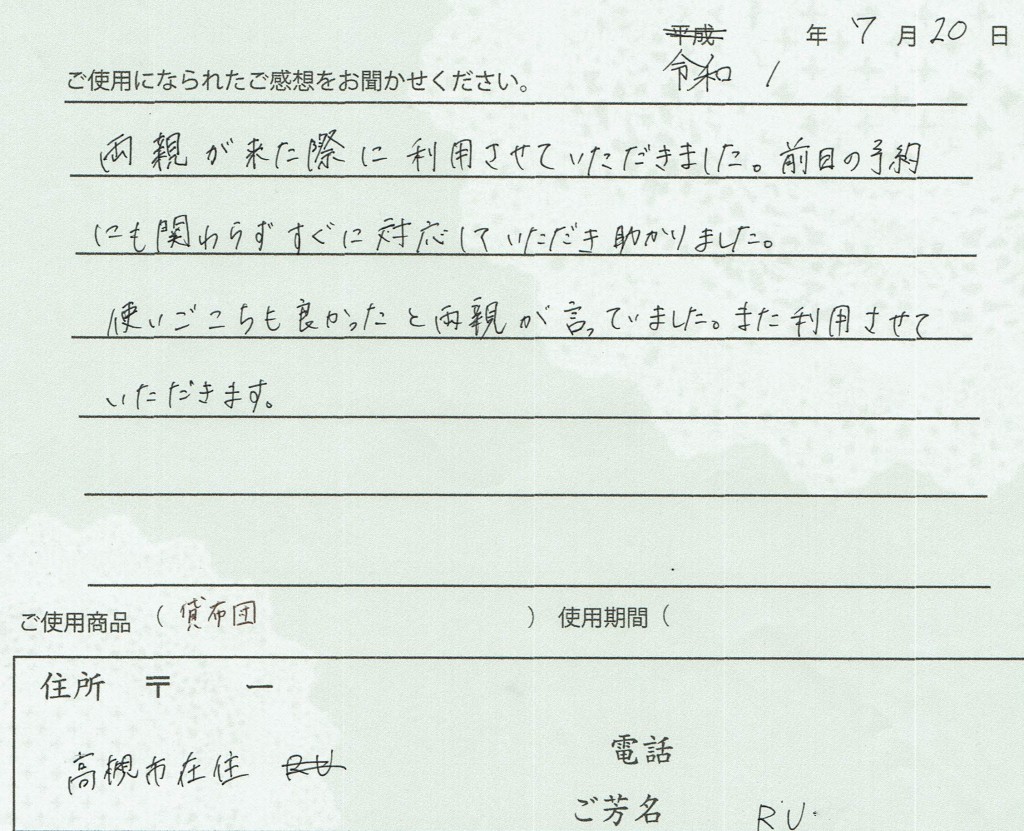 平成 年 7 月 20 日
令和 1
ご使用になられたご感想をお聞かせください。
両親が来た際に利用させていただきました。前日の予約
にも関わらずすぐに対応していただき助かりました。
使いごこちも良かったと両親が言っていました。また利用させて
いただきます。
ご使用商品 ( 貸布団 ) 使用期間 (
住所 〒 ー
高槻市在住 RU
電話
ご芳名 RU